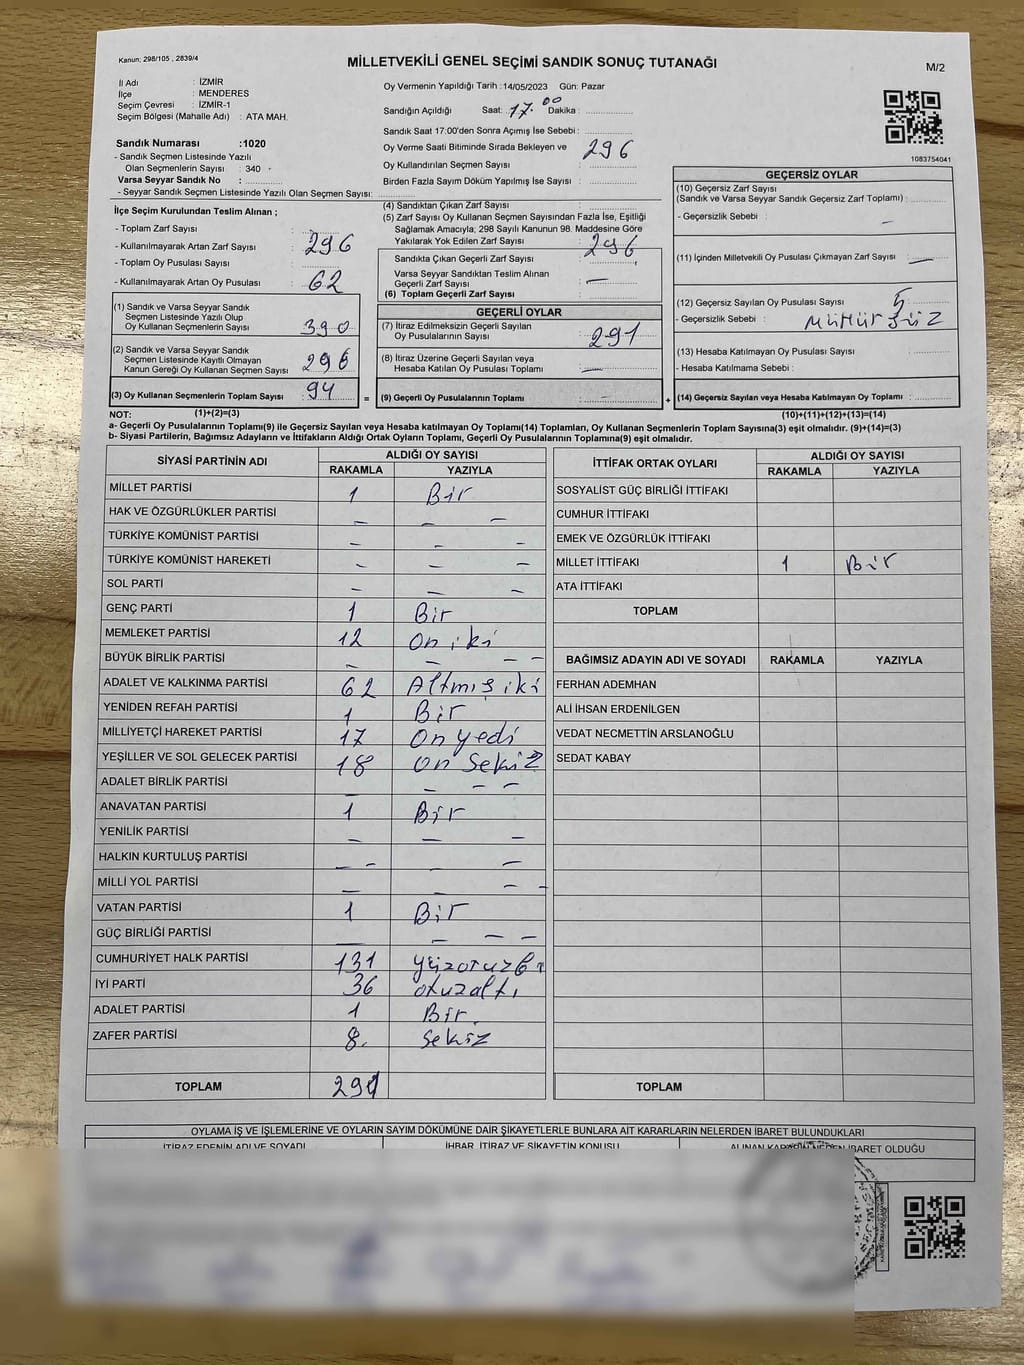 Kanun: 298/105 , 2839/4
MİLLETVEKİLİ GENEL SEÇİMİ SANDIK SONUÇ TUTANAĞI
M/2
İl Adı : İZMİR
İlçe : MENDERES
Seçim Çevresi : İZMİR-1
Seçim Bölgesi (Mahalle Adı) : ATA MAH.
Sandık Numarası :1020
- Sandık Seçmen Listesinde Yazılı
Olan Seçmenlerin Sayısı : 340
Varsa Seyyar Sandık No :
- Seyyar Sandık Seçmen Listesinde Yazılı Olan Seçmen Sayısı:
Oy Vermenin Yapıldığı Tarih :14/05/2023 Gün: Pazar
Sandığın Açıldığı Saat: 17.00 Dakika :
Sandık Saat 17:00'den Sonra Açımış İse Sebebi :
Oy Verme Saati Bitiminde Sırada Bekleyen ve
Oy Kullandırılan Seçmen Sayısı : 296
Birden Fazla Sayım Döküm Yapılmış İse Sayısı :
1083754041
İlçe Seçim Kurulundan Teslim Alınan ;
- Toplam Zarf Sayısı :
- Kullanılmayarak Artan Zarf Sayısı : 296
- Toplam Oy Pusulası Sayısı :
- Kullanılmayarak Artan Oy Pusulası : 62
(1) Sandık ve Varsa Seyyar Sandık
Seçmen Listesinde Yazılı Olup
Oy Kullanan Seçmenlerin Sayısı : 390
(2) Sandık ve Varsa Seyyar Sandık
Seçmen Listesinde Kayıtlı Olmayan
Kanun Gereği Oy Kullanan Seçmen Sayısı : 296
(3) Oy Kullanan Seçmenlerin Toplam Sayısı : 94 =
(1)+(2)=(3)
(4) Sandıktan Çıkan Zarf Sayısı :
(5) Zarf Sayısı Oy Kullanan Seçmen Sayısından Fazla İse, Eşitliği
Sağlamak Amacıyla; 298 Sayılı Kanunun 98. Maddesine Göre
Yakılarak Yok Edilen Zarf Sayısı : 296
Sandıkta Çıkan Geçerli Zarf Sayısı :
Varsa Seyyar Sandıktan Teslim Alınan
Geçerli Zarf Sayısı : —
(6) Toplam Geçerli Zarf Sayısı :
GEÇERLİ OYLAR
(7) İtiraz Edilmeksizin Geçerli Sayılan
Oy Pusulalarının Sayısı : 291
(8) İtiraz Üzerine Geçerli Sayılan veya
Hesaba Katılan Oy Pusulası Toplamı : —
(9) Geçerli Oy Pusulalarının Toplamı : - +
GEÇERSİZ OYLAR
(10) Geçersiz Zarf Sayısı
(Sandık ve Varsa Seyyar Sandık Geçersiz Zarf Toplamı) :
- Geçersizlik Sebebi : —
(11) İçinden Milletvekili Oy Pusulası Çıkmayan Zarf Sayısı : —
(12) Geçersiz Sayılan Oy Pusulası Sayısı : 5
- Geçersizlik Sebebi : MÜHÜRSÜZ
(13) Hesaba Katılmayan Oy Pusulası Sayısı :
- Hesaba Katılmama Sebebi :
(14) Geçersiz Sayılan veya Hesaba Katılmayan Oy Toplamı :
(10)+(11)+(12)+(13)=(14)
NOT:
a- Geçerli Oy Pusulalarının Toplamı(9) ile Geçersiz Sayılan veya Hesaba katılmayan Oy Toplamı(14) Toplamları, Oy Kullanan Seçmenlerin Toplam Sayısına(3) eşit olmalıdır. (9)+(14)=(3)
b- Siyasi Partilerin, Bağımsız Adayların ve İttifakların Aldığı Ortak Oyların Toplamı, Geçerli Oy Pusulalarının Toplamına(9) eşit olmalıdır.
SİYASİ PARTİNİN ADI ALDIĞI OY SAYISI
RAKAMLA YAZIYLA
MİLLET PARTİSİ 1 Bir
HAK VE ÖZGÜRLÜKLER PARTİSİ – – –
TÜRKİYE KOMÜNİST PARTİSİ – – –
TÜRKİYE KOMÜNİST HAREKETİ – – –
SOL PARTİ – – –
GENÇ PARTİ 1 Bir
MEMLEKET PARTİSİ 12 On iki
BÜYÜK BİRLİK PARTİSİ – – – –
ADALET VE KALKINMA PARTİSİ 62 Altmış iki
YENİDEN REFAH PARTİSİ 1 Bir
MİLLİYETÇİ HAREKET PARTİSİ 17 On yedi
YEŞİLLER VE SOL GELECEK PARTİSİ 18 On Sekiz
ADALET BİRLİK PARTİSİ – – – –
ANAVATAN PARTİSİ 1 Bir
YENİLİK PARTİSİ – – –
HALKIN KURTULUŞ PARTİSİ – – – –
MİLLİ YOL PARTİSİ – – – –
VATAN PARTİSİ 1 Bir
GÜÇ BİRLİĞİ PARTİSİ – – – –
CUMHURİYET HALK PARTİSİ 131 yüzotuzbi
İYİ PARTİ 36 otuzaltı
ADALET PARTİSİ 1 Bir
ZAFER PARTİSİ 8. Sekiz
TOPLAM 291
İTTİFAK ORTAK OYLARI ALDIĞI OY SAYISI
RAKAMLA YAZIYLA
SOSYALİST GÜÇ BİRLİĞİ İTTİFAKI
CUMHUR İTTİFAKI
EMEK VE ÖZGÜRLÜK İTTİFAKI
MİLLET İTTİFAKI 1 Bir
ATA İTTİFAKI
TOPLAM
BAĞIMSIZ ADAYIN ADI VE SOYADI RAKAMLA YAZIYLA
FERHAN ADEMHAN
ALİ İHSAN ERDENİLGEN
VEDAT NECMETTİN ARSLANOĞLU
SEDAT KABAY
TOPLAM
OYLAMA İŞ VE İŞLEMLERİNE VE OYLARIN SAYIM DÖKÜMÜNE DAİR ŞİKAYETLERLE BUNLARA AİT KARARLARIN NELERDEN İBARET BULUNDUKLARI
İTİRAZ EDENİN ADI VE SOYADI İHBAR, İTİRAZ VE ŞİKAYETİN KONUSU ALINAN KARARIN NEDEN İBARET OLDUĞU